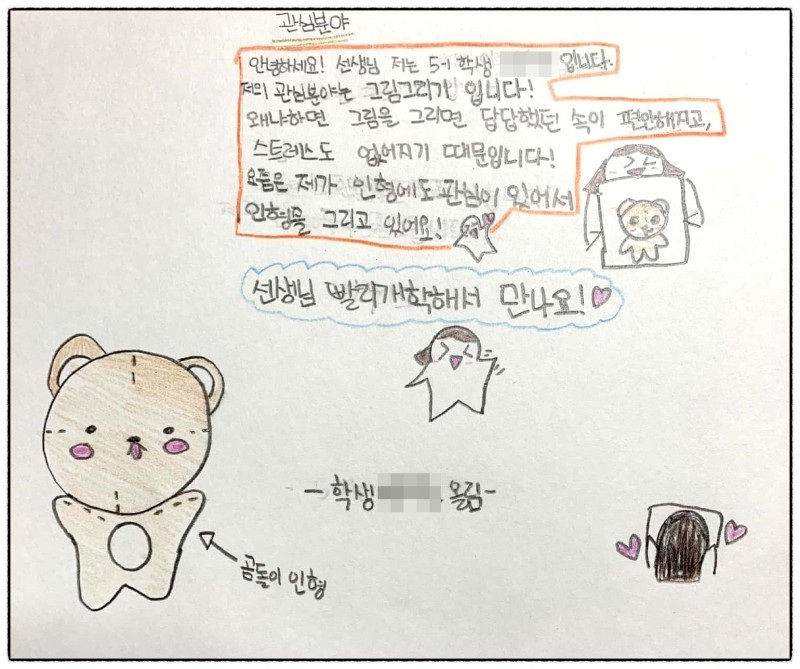 관심분야
안녕하세요! 선생님 저는 5-1 학생 입니다.
저의 관심분야는 그림그리기 입니다!
왜냐하면 그림을 그리면 답답했던 속이 편안해지고,
스트레스도 없어지기 때문입니다!
요즘은 제가 인형에도 관심이 있어서
인형을 그리고 있어요!
선생님 빨리개학해서 만나요!
- 학생 올림-
곰돌이 인형